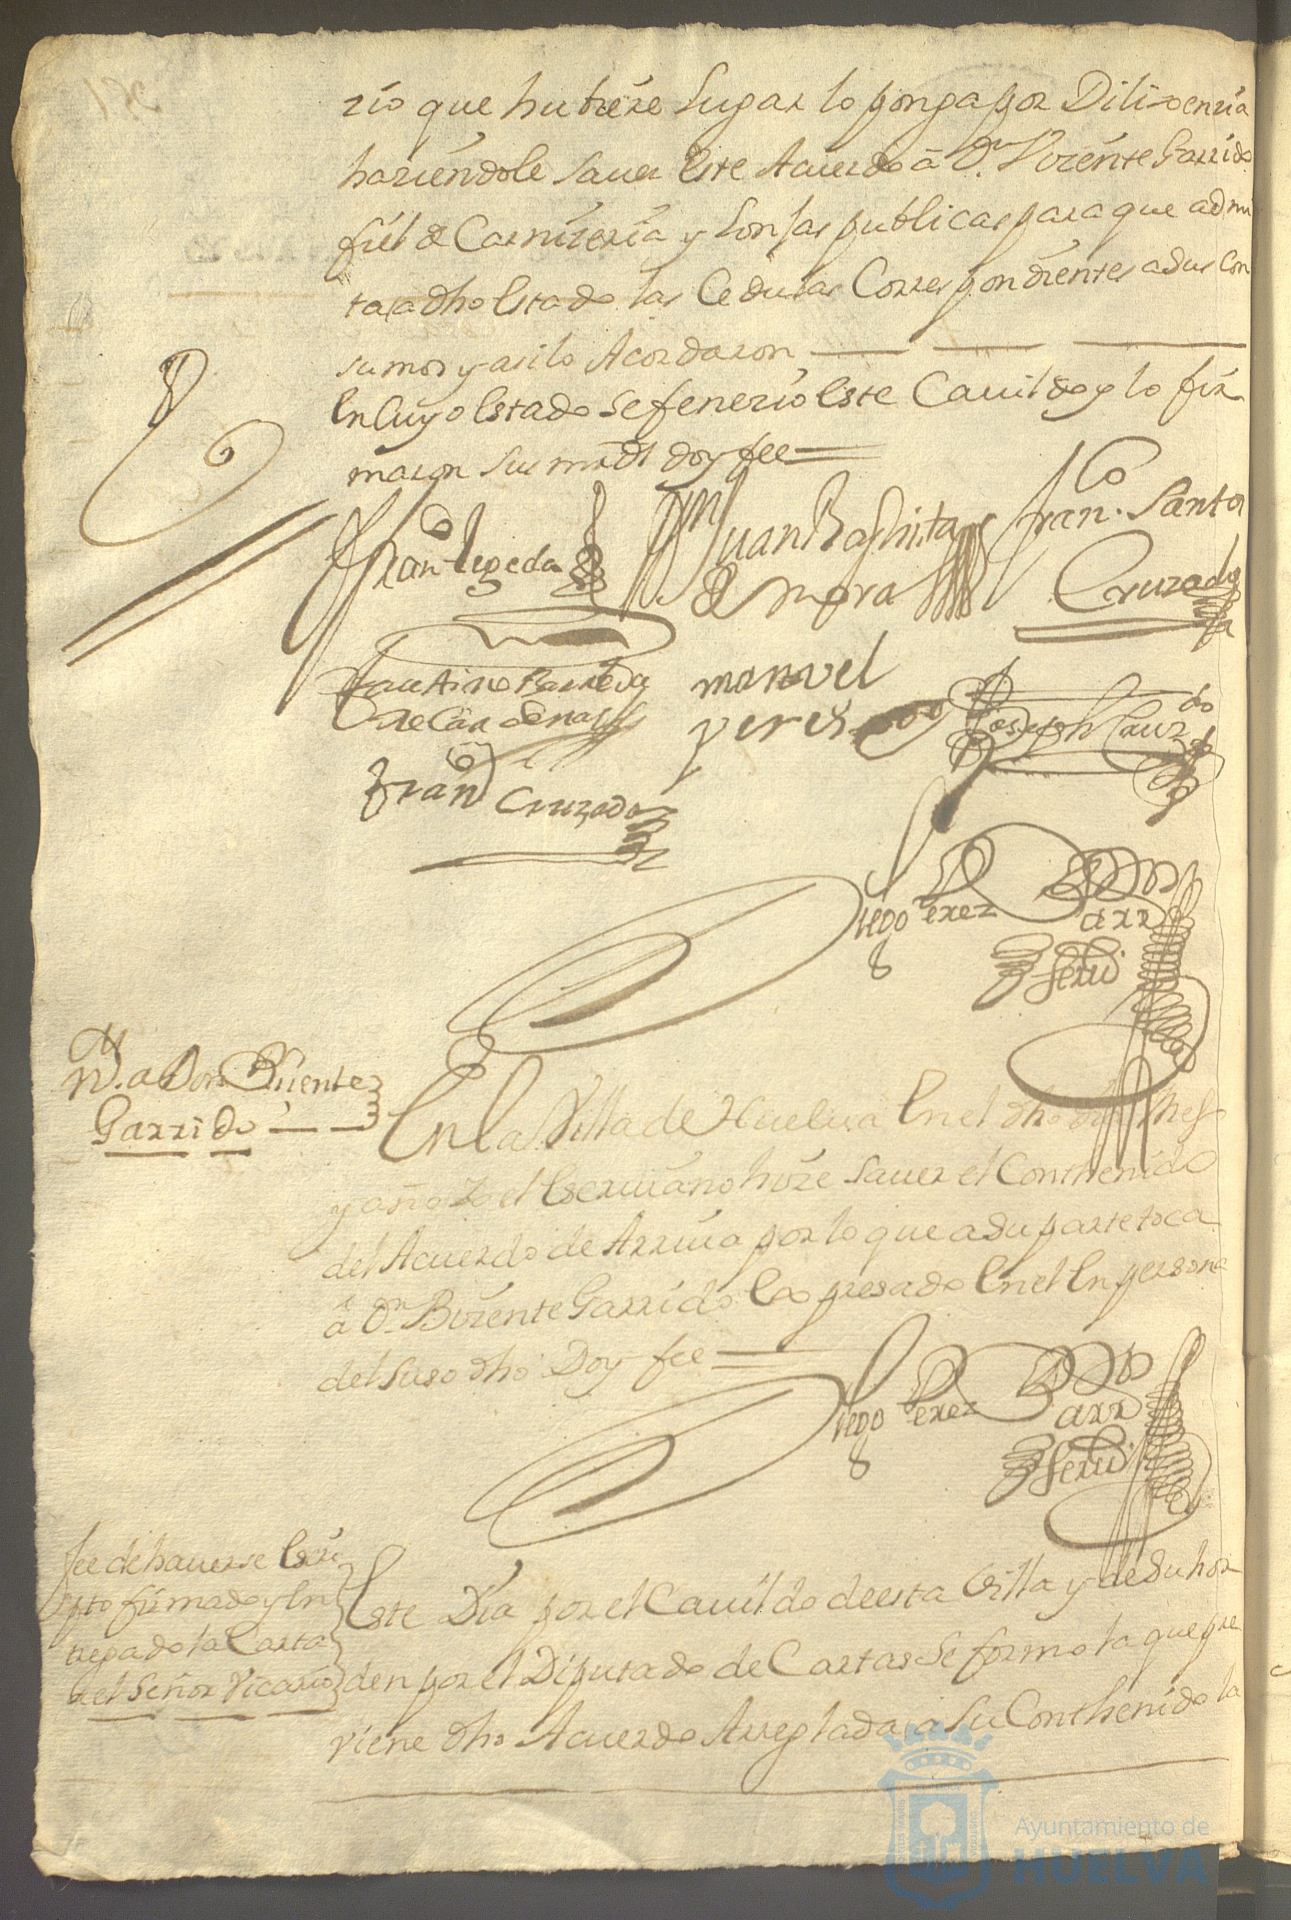 rio que hubiere lugar lo ponga por Dilixencia
haciendole saver este Acuerdo â Dn. Vizente Garrido
fiel de Carnizeria y lonjas publicas para que admi
ta a dho Estado las Cedulas Correspondientes a sus con
sumos y asi lo Acordaron
En Cuyo Estado se feneció este Cavildo y lo fir
maron sus mrds doy fee
Fran.co Zepeda
Juan Baphista
de Mora
Fran.co Santos
Cruzado
Faustino Barreda
de Cardenas
manuel
perez
Joseph Cruzdo
Fran.co Cruzado
Diego Perez
Barr
Serno
N. a Don Bizente
Garrido
En la Villa de Huelva En el dho dia Mes
y año Yo el Escrivano hize saver el Conthenido
del Acuerdo de Arriva por lo que a su parte toca
â Dn. Bizente Garrido Expresado En el En persona
del suso dho Doy fee
Diego Perez
Barr
Serno
fee de haverse Escri
pto firmado y En
tregado la Carta
al Señor Vicario
Este Dia por el Cavildo de esta Villa y de su hor
den por el Diputado de Cartas se formo la que pre
viene dho Acuerdo Arreglada a su Conthenido la
Ayuntamiento de
HUELVA